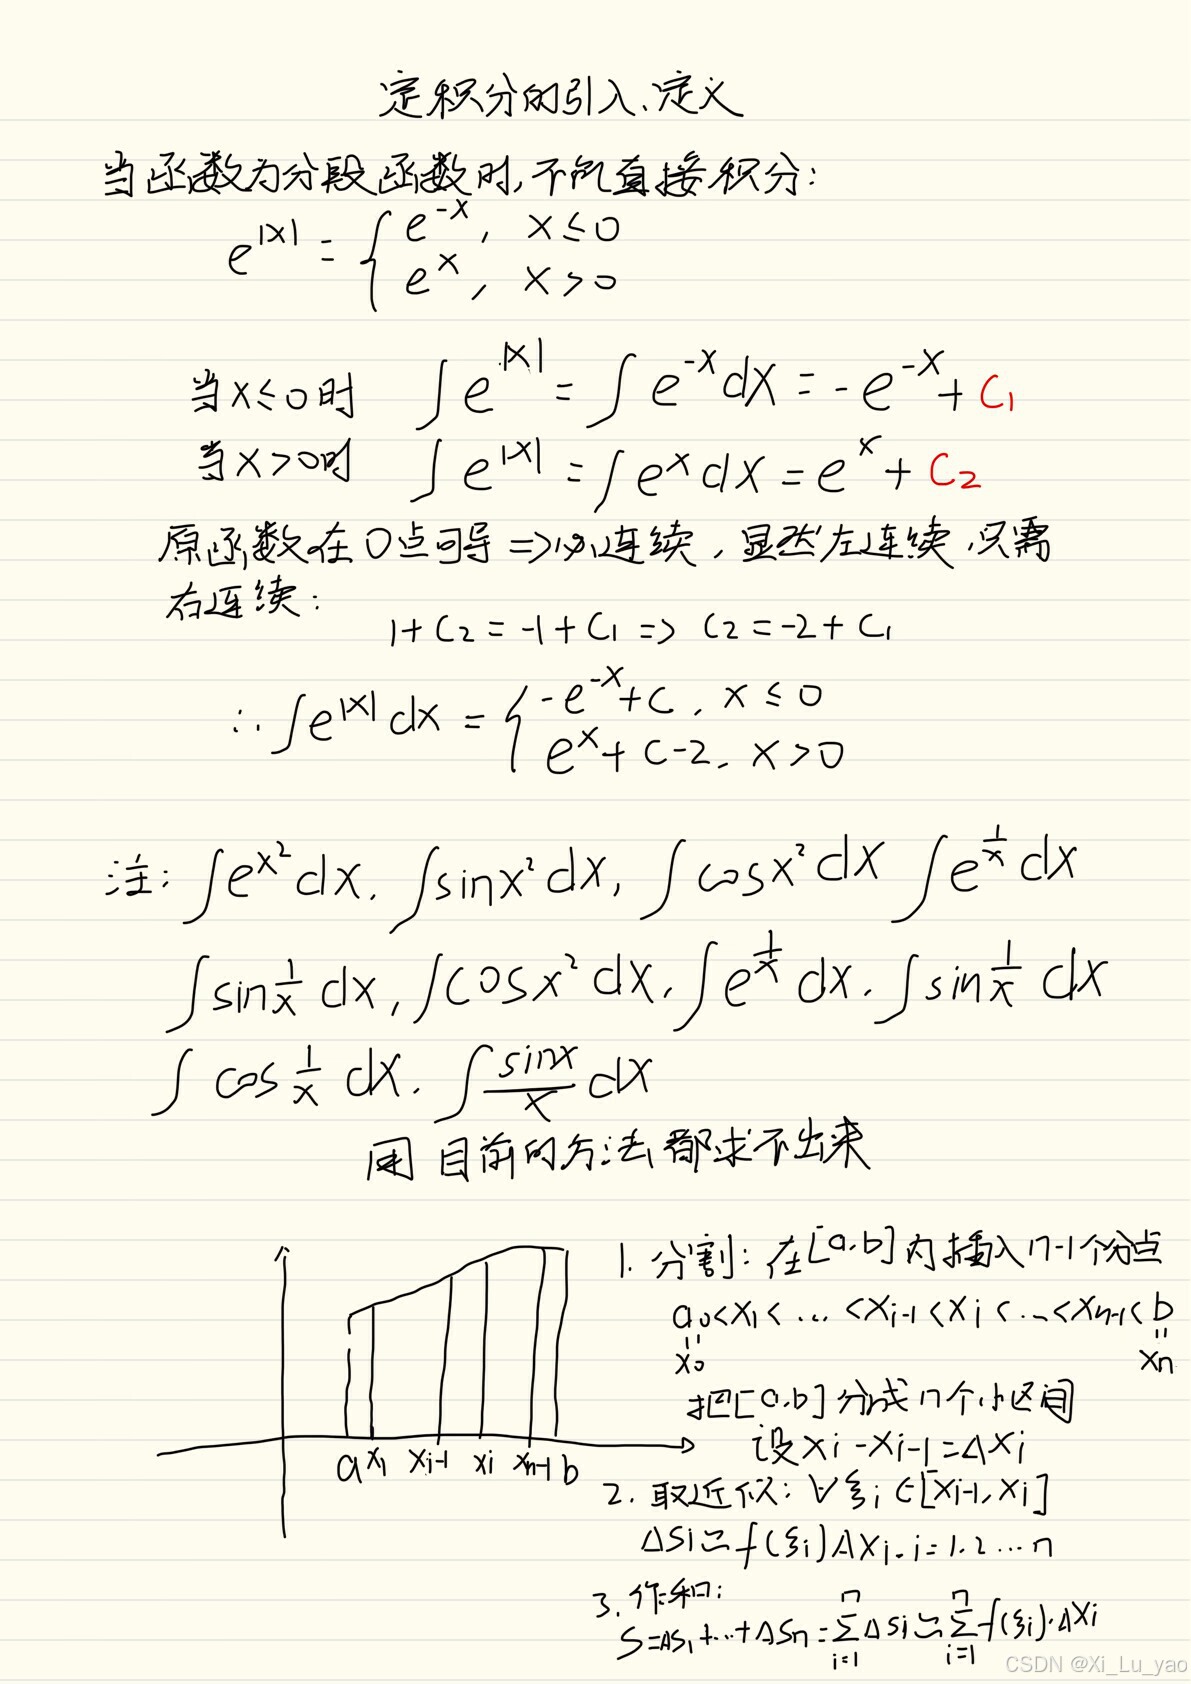 定积分的引入、定义
当函数为分段函数时,不能直接积分:
e^|x| = { e^-x, x≤0
e^x, x>0
当x≤0时 ∫e^|x| = ∫e^-x dx = -e^-x + C₁
当x>0时 ∫e^|x| = ∫e^x dx = e^x + C₂
原函数在0点可导=>必连续,显然左连续,只需
右连续:
1+C₂=-1+C₁=> C₂=-2+C₁
∴∫e^|x| dx = { -e^-x+C, x≤0
e^x+C-2, x>0
注: ∫e^x² dx, ∫sinx² dx, ∫cosx² dx ∫e^1/x dx
∫sin 1/x dx, ∫cosx² dx, ∫e^1/x dx, ∫sin 1/x dx
∫cos 1/x dx, ∫sinx/x dx
用目前的方法都求不出来
1. 分割: 在[a,b]内插入n-1个分点
a₀<x₁<...<xi-1<xi<...<xn-1<b
=x₀ =xn
把[a,b]分成n个小区间
设xi-xi-1=Δxi
a x₁ xi-1 xi xn-1 b
2. 取近似: ∀ξi∈[xi-1, xi]
ΔSi≃f(ξi)Δxi, i=1.2...n
3. 作和:
S=ΔS₁+...+ΔSn=∑(i=1,n)ΔSi≃∑(i=1,n)f(ξi)·Δxi
CSDN @Xi_Lu_yao